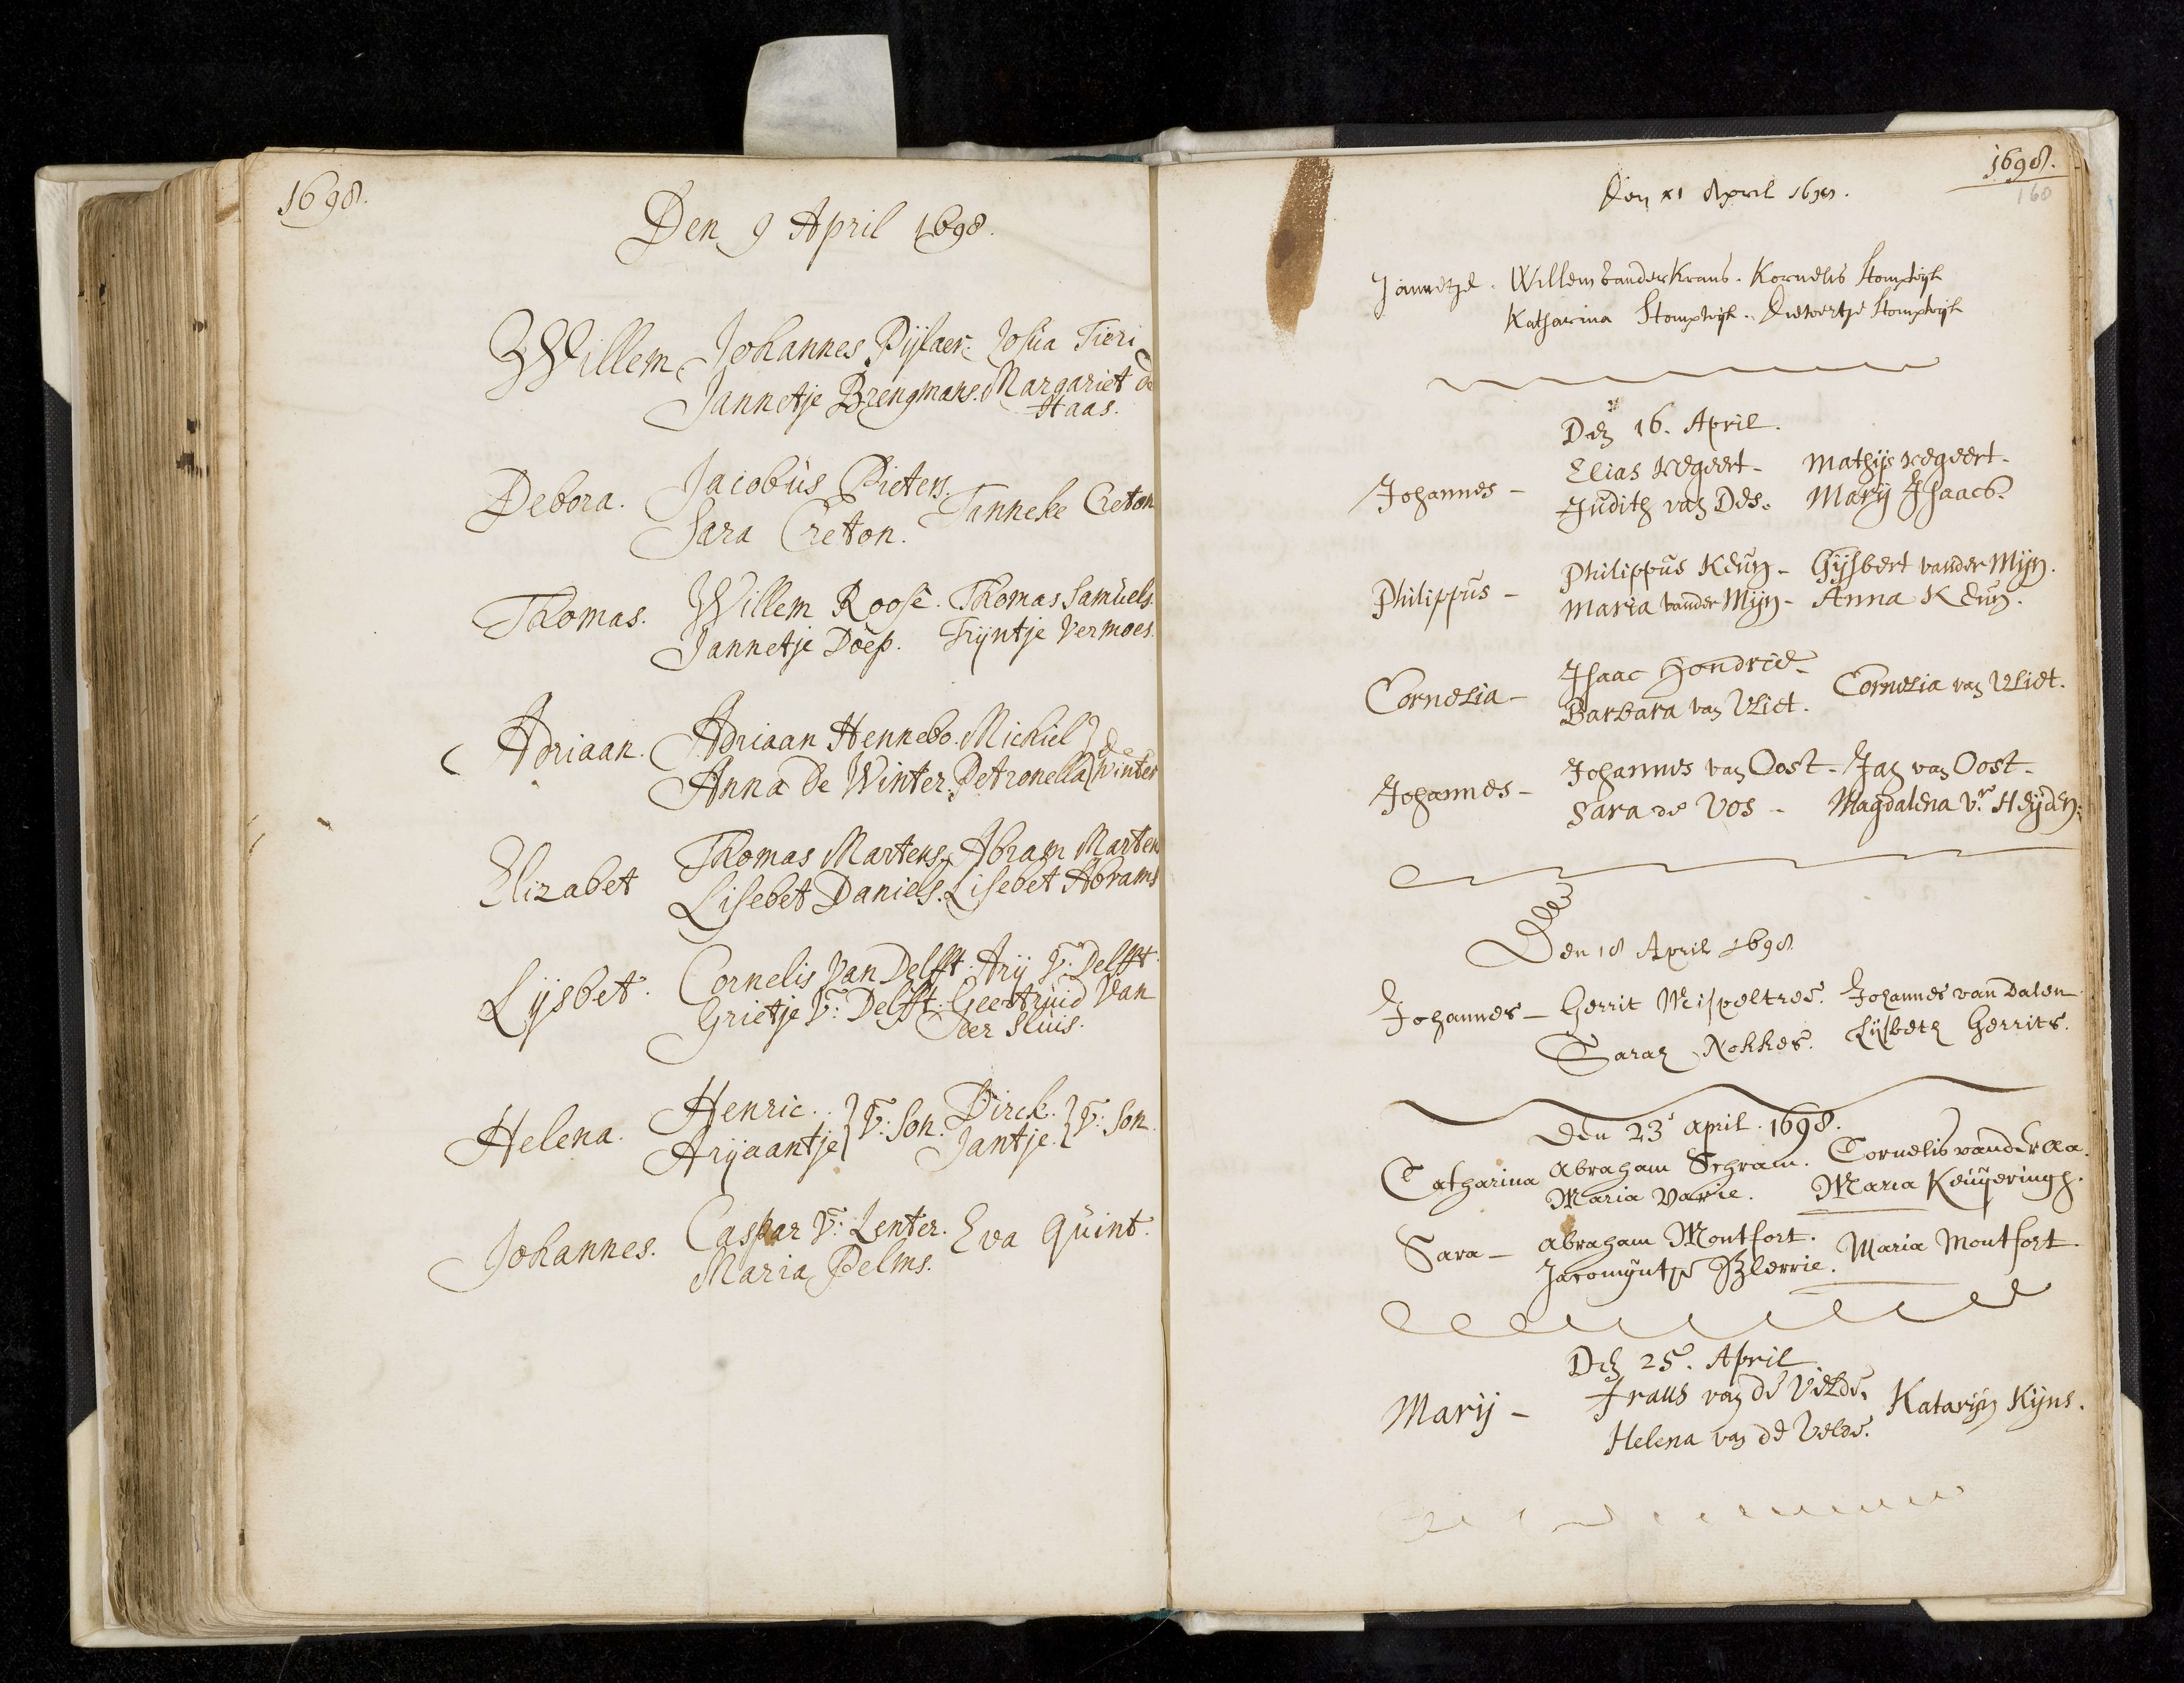 1698.
Den 9 April 1698.
Willem Johannes Pijlaer. Josua Tieri
Jannetje Brengmans. Margariet de
Haas.
Debora. Jacobus Pieters.
Sara Creton. Tanneke Creton
Thomas. Willem Roose. Thomas Samuels.
Jannetje Doep. Trijntje Vermoes.
Adriaan. Adriaan Hennebo. Michiel } de
Anna de Winter. Petronella } Winter
Elizabet Thomas Martens. Abram Marten
Lisebet Daniels. Lisebet Abrams
Lijsbet. Cornelis Van Delfft. Arij V: Delfft.
Grietje V: Delfft. Geertruid Van
der Sluis.
Helena. Henric. } V: Son. Dirck. } V: Son.
Arijaantje } Jantje. }
Johannes. Caspar V: Lenter. Eva Quint.
Maria Pelms.
1698.
160
Den 11 April 1698.
Jannetje. Willem vander Krans. Kornelis Stompwijk
Katharina Stompwijk. Diewertje Stompwijk
Den 16. April.
Johannes - Elias Kegeert - Mathijs Kegeert -
Judith van Des. Marij Isaacs.
Philippus - Philippus Keun - Gijsbert vander Mijn.
Maria vander Mijn - Anna Keun.
Cornelia - Isaac Hondrie -
Barbara van Vliet. Cornelia van Vliet.
Johannes - Johannes van Oost - Jan van Oost -
Sara de Vos - Magdalena vr. Heijden.
Den 18 April 1698
Johannes - Gerrit Mispeltree. Johannes van Dalen
Sara Nokkes. Lijsbeth Gerrits.
Den 23 april. 1698.
Catharina Abraham Schram. Cornelis vander Aa.
Maria Varie. Maria Keuijeringh.
Sara - Abraham Montfort.
Jacomijntje Maria Montfort.
Den 25. April
Marij - Frans van de Velde. Katarijn Kijns.
Helena van de Velde.